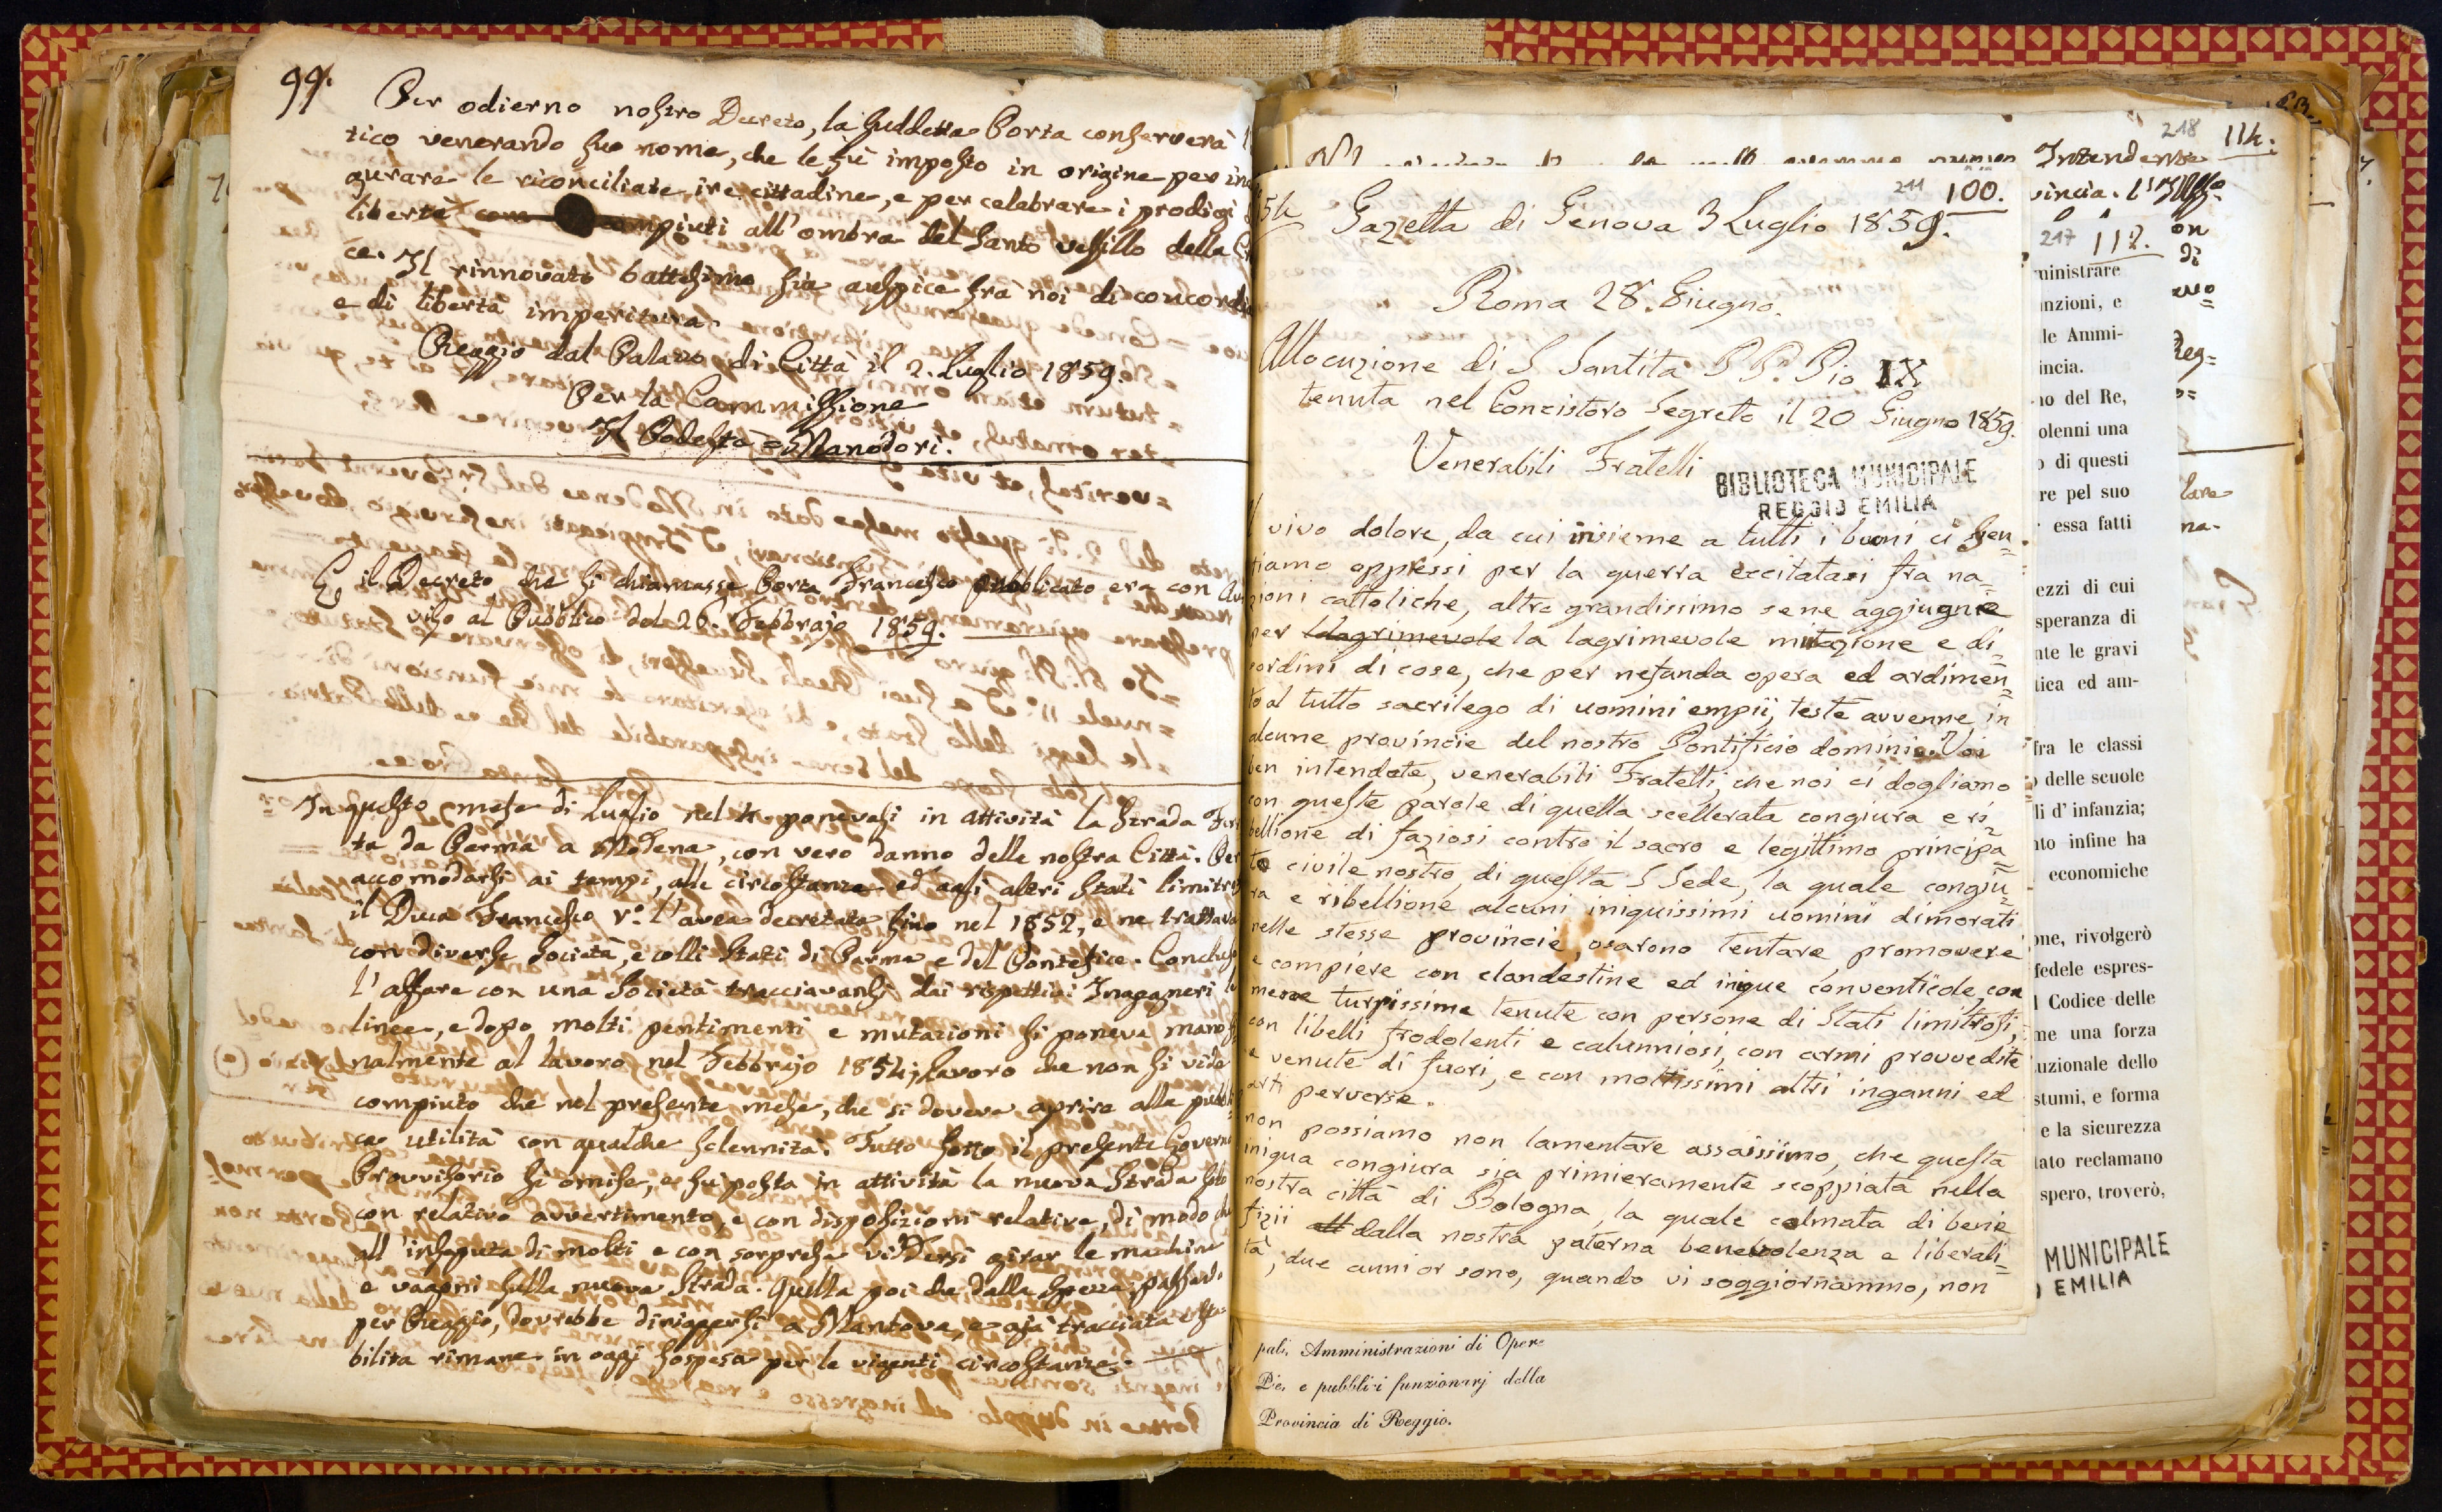 99.
Per odierno nostro Decreto, la suddetta Porta conserverà
tico venerando suo nome, che le fù imposto in origine per in
gurare le riconciliate ire cittadine, e per celebrare i prodigi
libertà com mpiuti all'ombra del Santo vessillo della
ce. Il rinnovato battesimo sia auspice frà noi di concordia
e di libertà imperitura.
Reggio dal Palazzo di Città il 2. Luglio 1859.
Per la Commissione
Il Podestà = Manodori.
E, il Decreto che si chiamasse Porta Francesco pubblicato era con Av
viso al Pubblico del 26. Febbrajo 1859.
In questo mese di Luglio nel 4 ponevasi in attività la Strada Fer
ta da Parma a Modena, con vero danno della nostra Città. Per
accomodarsi ai tempi, alle circostanze ed agli altri Stati limitrofi
il Duca Francesco V.º l'avea decretata sino nel 1852, e ne trattava
con diverse Società, e colli Stati di Parma e del Pontefice. Concluso
l'affare con una Società tracciavansi dai rispettivi Ingegneri le
linee, e dopo molti pentimenti e mutazioni si poneva mano fi=
nalmente al lavoro nel Febbrajo 1854; lavoro che non si vide
compiuto che nel presente mese, che si doveva aprire alla pubbli
ca utilità con qualche solennità. Tutto sotto il presente Governo
Provvisorio si omise, e fu posta in attività la nuova Strada solo
con relativo avvertimento, e con disposizioni relative, di modo che
all'insaputa di molti e con sorpresa viddersi girar le machine
e vagoni sulla nuova Strada. Quella poi che dalla Spezzia, passando
per Reggio, dovrebbe dirigersi a Mantova, e già tracciata e sta=
bilita rimane in oggi sospesa per le vigenti circostanze.
211 100.
54 Gazzetta di Genova 3 Luglio 1859.
Roma 28. Giugno.
Allocuzione di S Santità P P. Pio IX
tenuta nel Concistoro Segreto il 20 Giugno 1859.
Venerabili Fratelli
BIBLIOTECA MUNICIPALE
REGGIO EMILIA
l vivo dolore, da cui insieme a tutti i buoni ci sen=
tiamo oppressi per la guerra eccitatasi fra na=
zioni cattoliche, altro grandissimo se ne aggiugne
per lagrimevole la lagrimevole mutazione e di=
sordini di cose, che per nefanda opera ed ardimen=
to al tutto sacrilego di uomini empii, testè avvenne in
alcune provincie del nostro Pontificio dominio. Voi
ben intendete, venerabili Fratelli, che noi ci dogliamo
con queste parole di quella scellerata congiura e ri=
bellione di faziosi contro il sacro e legittimo principa=
to civile nostro, di questa S Sede, la quale congiu=
ra e ribellione alcuni iniquissimi uomini dimorati
nelle stesse provincie, osarono tentare, promovere
e compiere con clandestine ed inique conventicole, con
mene turpissime tenute con persone di Stati limitrofi,
con libelli frodolenti e calunniosi, con armi provvedute
e venute di fuori, e con moltissimi altri inganni ed
arti perverse.
non possiamo non lamentare assaissimo, che questa
iniqua congiura sia primieramente scoppiata nella
nostra città di Bologna, la quale colmata di bene=
fizii dalla nostra paterna benevolenza e liberali=
tà, due anni or sono, quando vi soggiornammo, non
pali, Amministrazioni di Opere
Pie, e pubblici funzionarj della
Provincia di Reggio.
218 114.
Intendenza
vincia.
217 112.
on
ministrare
di
nzioni, e
le Ammi-
Reg=
incia.
no del Re,
olenni una
o di questi
re pel suo
essa fatti
na.
ezzi di cui
speranza di
nte le gravi
tica ed am-
fra le classi
o delle scuole
li d'infanzia;
nto infine ha
economiche
one, rivolgerò
fedele espres-
l Codice delle
me una forza
uzionale dello
stumi, e forma
e la sicurezza
lato reclamano
spero, troverò,
MUNICIPALE
EMILIA